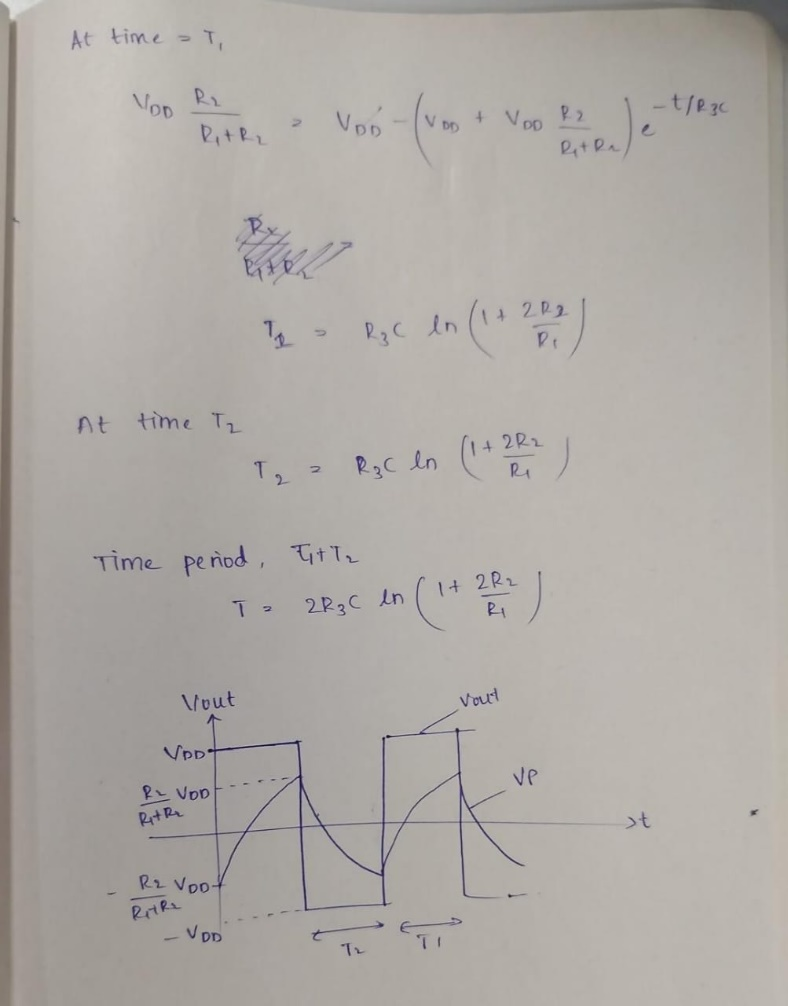 At time = T₁
V_DD R₂/(R₁+R₂) = V_DD - (V_DD + V_DD R₂/(R₁+R₂)) e^(-t/R₃C)
T₁ = R₃C ln (1 + 2R₂/R₁)
At time T₂
T₂ = R₃C ln (1 + 2R₂/R₁)
Time period, T₁+T₂
T = 2R₃C ln (1 + 2R₂/R₁)
Vout
Vout
V_DD
R₂/(R₁+R₂) V_DD
VP
t
- R₂/(R₁+R₂) V_DD
- V_DD
T₂
T1